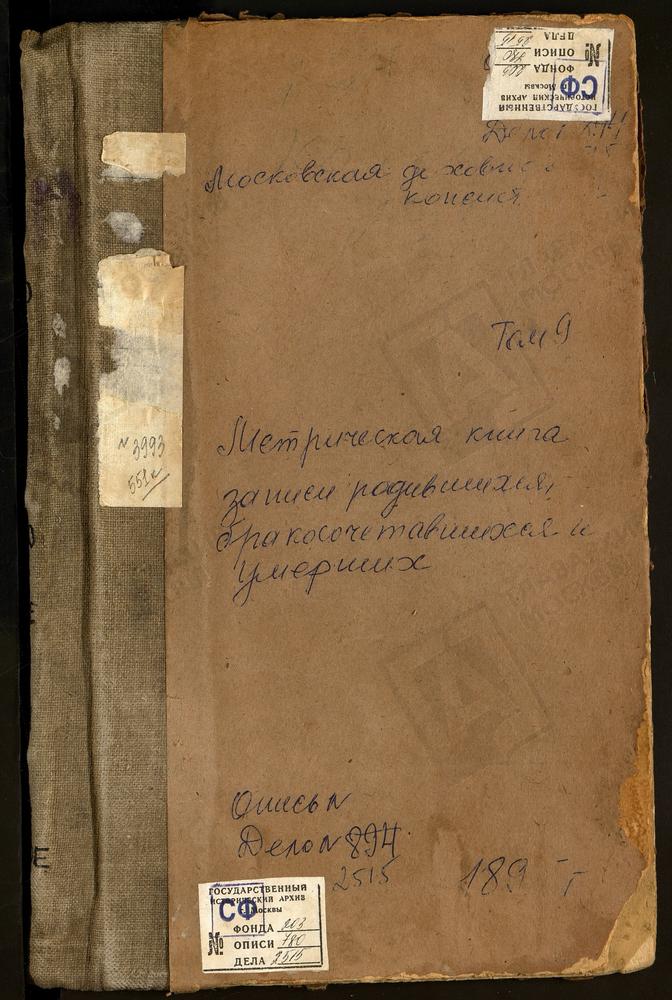 ГОСУДАРСТВЕННЫЙ
ИСТОРИЧЕСКИЙ АРХИВ
г. Москвы
СФ
№
ФОНДА 203
ОПИСИ 780
ДЕЛА 2515
Дело
Московская
Том 9
№ 3993
551л
Метрическая книга
записи родившихся,
бракосочетавшихся и
умерших
Опись №
Дело № 894
2515
189
ГОСУДАРСТВЕННЫЙ
ИСТОРИЧЕСКИЙ АРХИВ
г. Москвы
СФ
№
ФОНДА 203
ОПИСИ 780
ДЕЛА 2515
Е